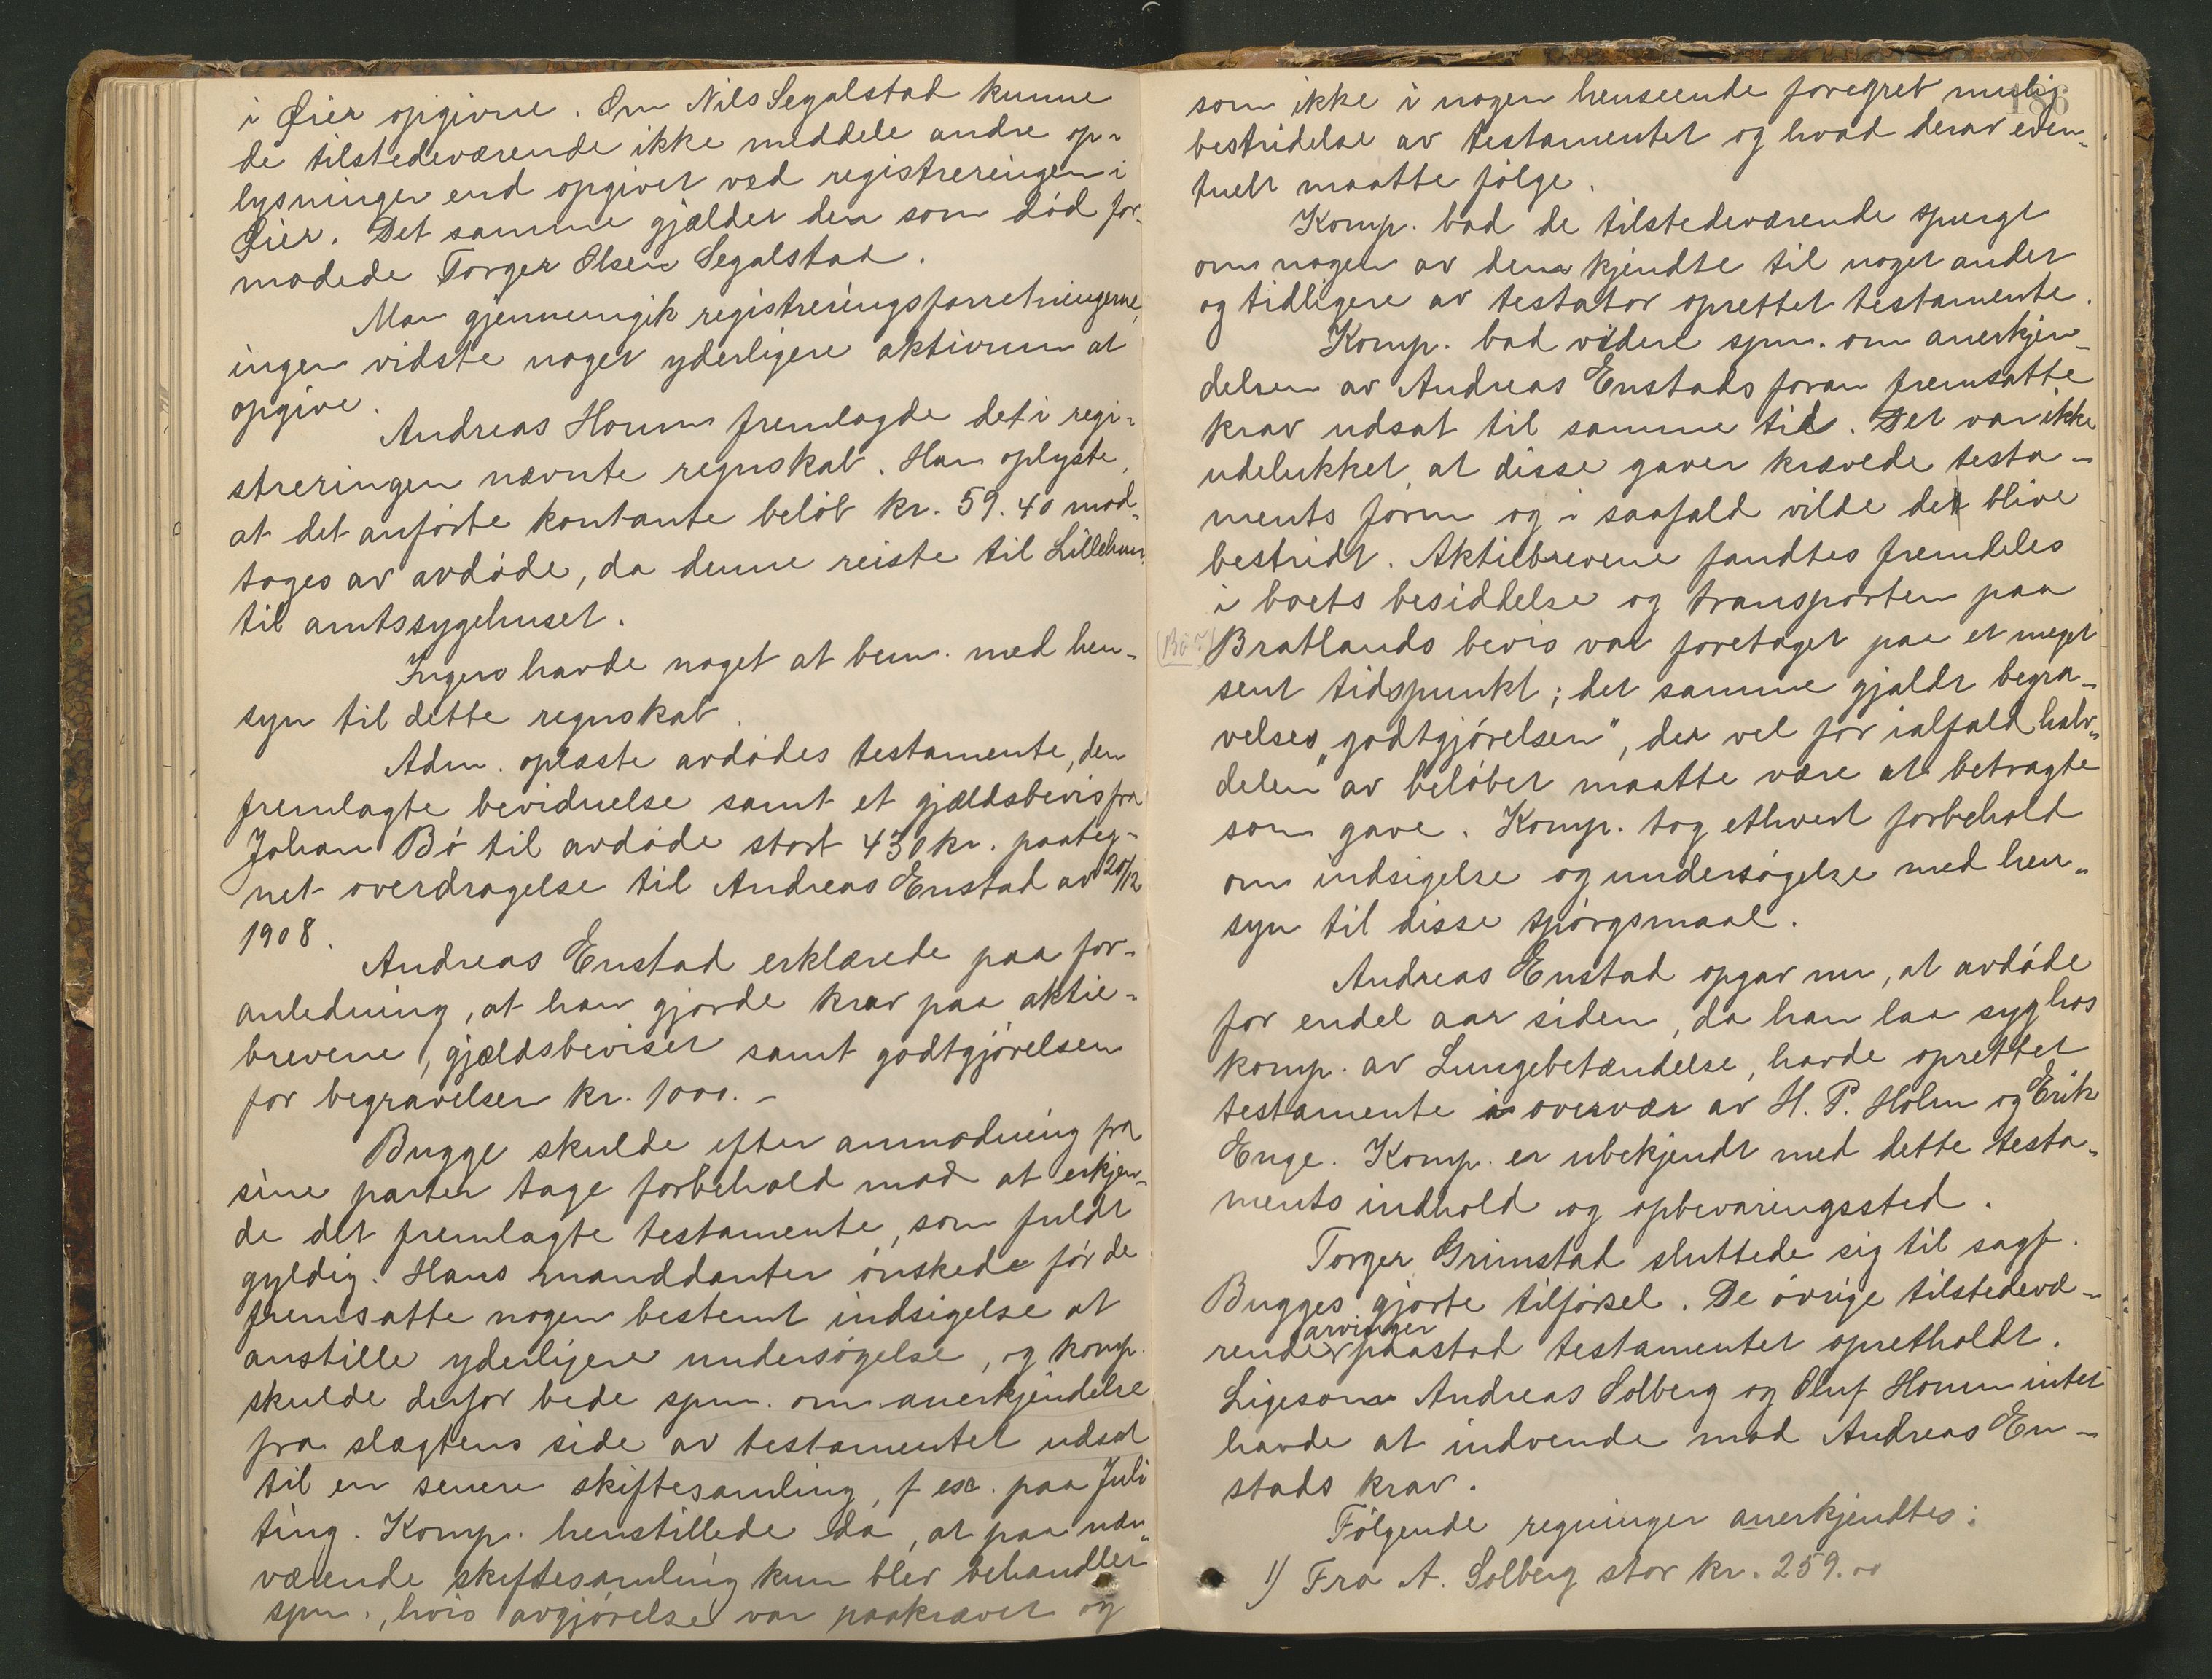 i Øier opgivne. Om Nils Segalstad kunne
de tilstedeværende ikke meddele andre op-
lysninger end opgivet ved registreringen i
Øier. Det samme gjælder den som død for-
modede Torger Olsen Segalstad.
Man gjennemgik registreringsforretningerne,
ingen vidste noget yderligere aktivum at
opgive.
Andreas Homm fremlagde det i regi-
streringen nævnte regnskab. Han oplyste,
at det anførte kontante beløb kr. 59.40 mod-
toges av avdøde, da denne reiste til Lilleham.
til amtssygehuset.
Ingen havde noget at bem. med hen-
syn til dette regnskab.
Adm. oplæste avdødes testamente, den
fremlagte bevidnelse samt et gjældsbevis fra
Johan Bø til avdøde stort 430 kr. paateg-
net overdragelse til Andreas Enstad av 20/12
1908.
Andreas Enstad erklærede paa for-
anledning, at han gjorde krav paa aktie-
brevene, gjældsbeviset samt godtgjørelsen
for begravelsen kr. 1000.-
Bugge skulde efter anmodning fra
sine parter tage forbehold mod at erkjen-
de det fremlagte testamente, som fuldt
gyldig. Hans manddanter ønskede før de
fremsatte nogen bestemt indsigelse at
anstille yderligere undersøgelse, og komp.
skulde derfor bede spm. om anerkjendelse
fra slægtens side av testamentet udsat
til en senere skiftesamling, f ex. paa Juli
ting. Komp. henstillede da, at paa nær-
værende skiftesamling kun blev behandlet
spm., hvis avgjørelse var paakrævet og
186
som ikke i nogen henseende foregret mulig
bestridelse av testamentet og hvad derav even-
tuelt maatte følge.
Komp. bad de tilstedeværende spurgt
om nogen av dem kjendte til noget andet
og tidligere av testator oprettet testamente.
Komp. bad videre spm. om anerkjen-
delsen av Andreas Enstads foran fremsatte
krav udsat til samme tid. Det var ikke
udelukket, at disse gaver krævede testa-
ments form og i saafald vilde det blive
bestridt. Aktiebrevene fandtes fremdeles
i boets besiddelse og transporten paa
(Bø?) Bratlands bevis var foretaget paa et meget
sent tidspunkt; det samme gjaldt begra-
velses "godtgjørelsen", der vel for ialfald halv-
delen av beløbet maatte være at betragte
som gave. Komp. tog ethvert forbehold
om indsigelse og undersøgelse med hen-
syn til disse spørgsmaal.
Andreas Enstad opgav nu, at avdøde
for endel aar siden, da han laa syg hos
komp. av Lungebetændelse, havde oprettet
testamente i overvær av H. P. Holm og Erik
Enge. Komp. er ubekjendt med dette testa-
ments indhold og opbevaringssted.
Torger Grimstad sluttede sig til sagf.
Bugges gjorte tilførsel. De øvrige tilstedevæ-
arvinger
rende paastod testamentet opretholdt.
Ligesom Andreas Solberg og Oluf Homm intet
havde at indvende mod Andreas En-
stads krav.
Følgende regninger anerkjendtes:
1) Fra A. Solberg stor kr. 259.00